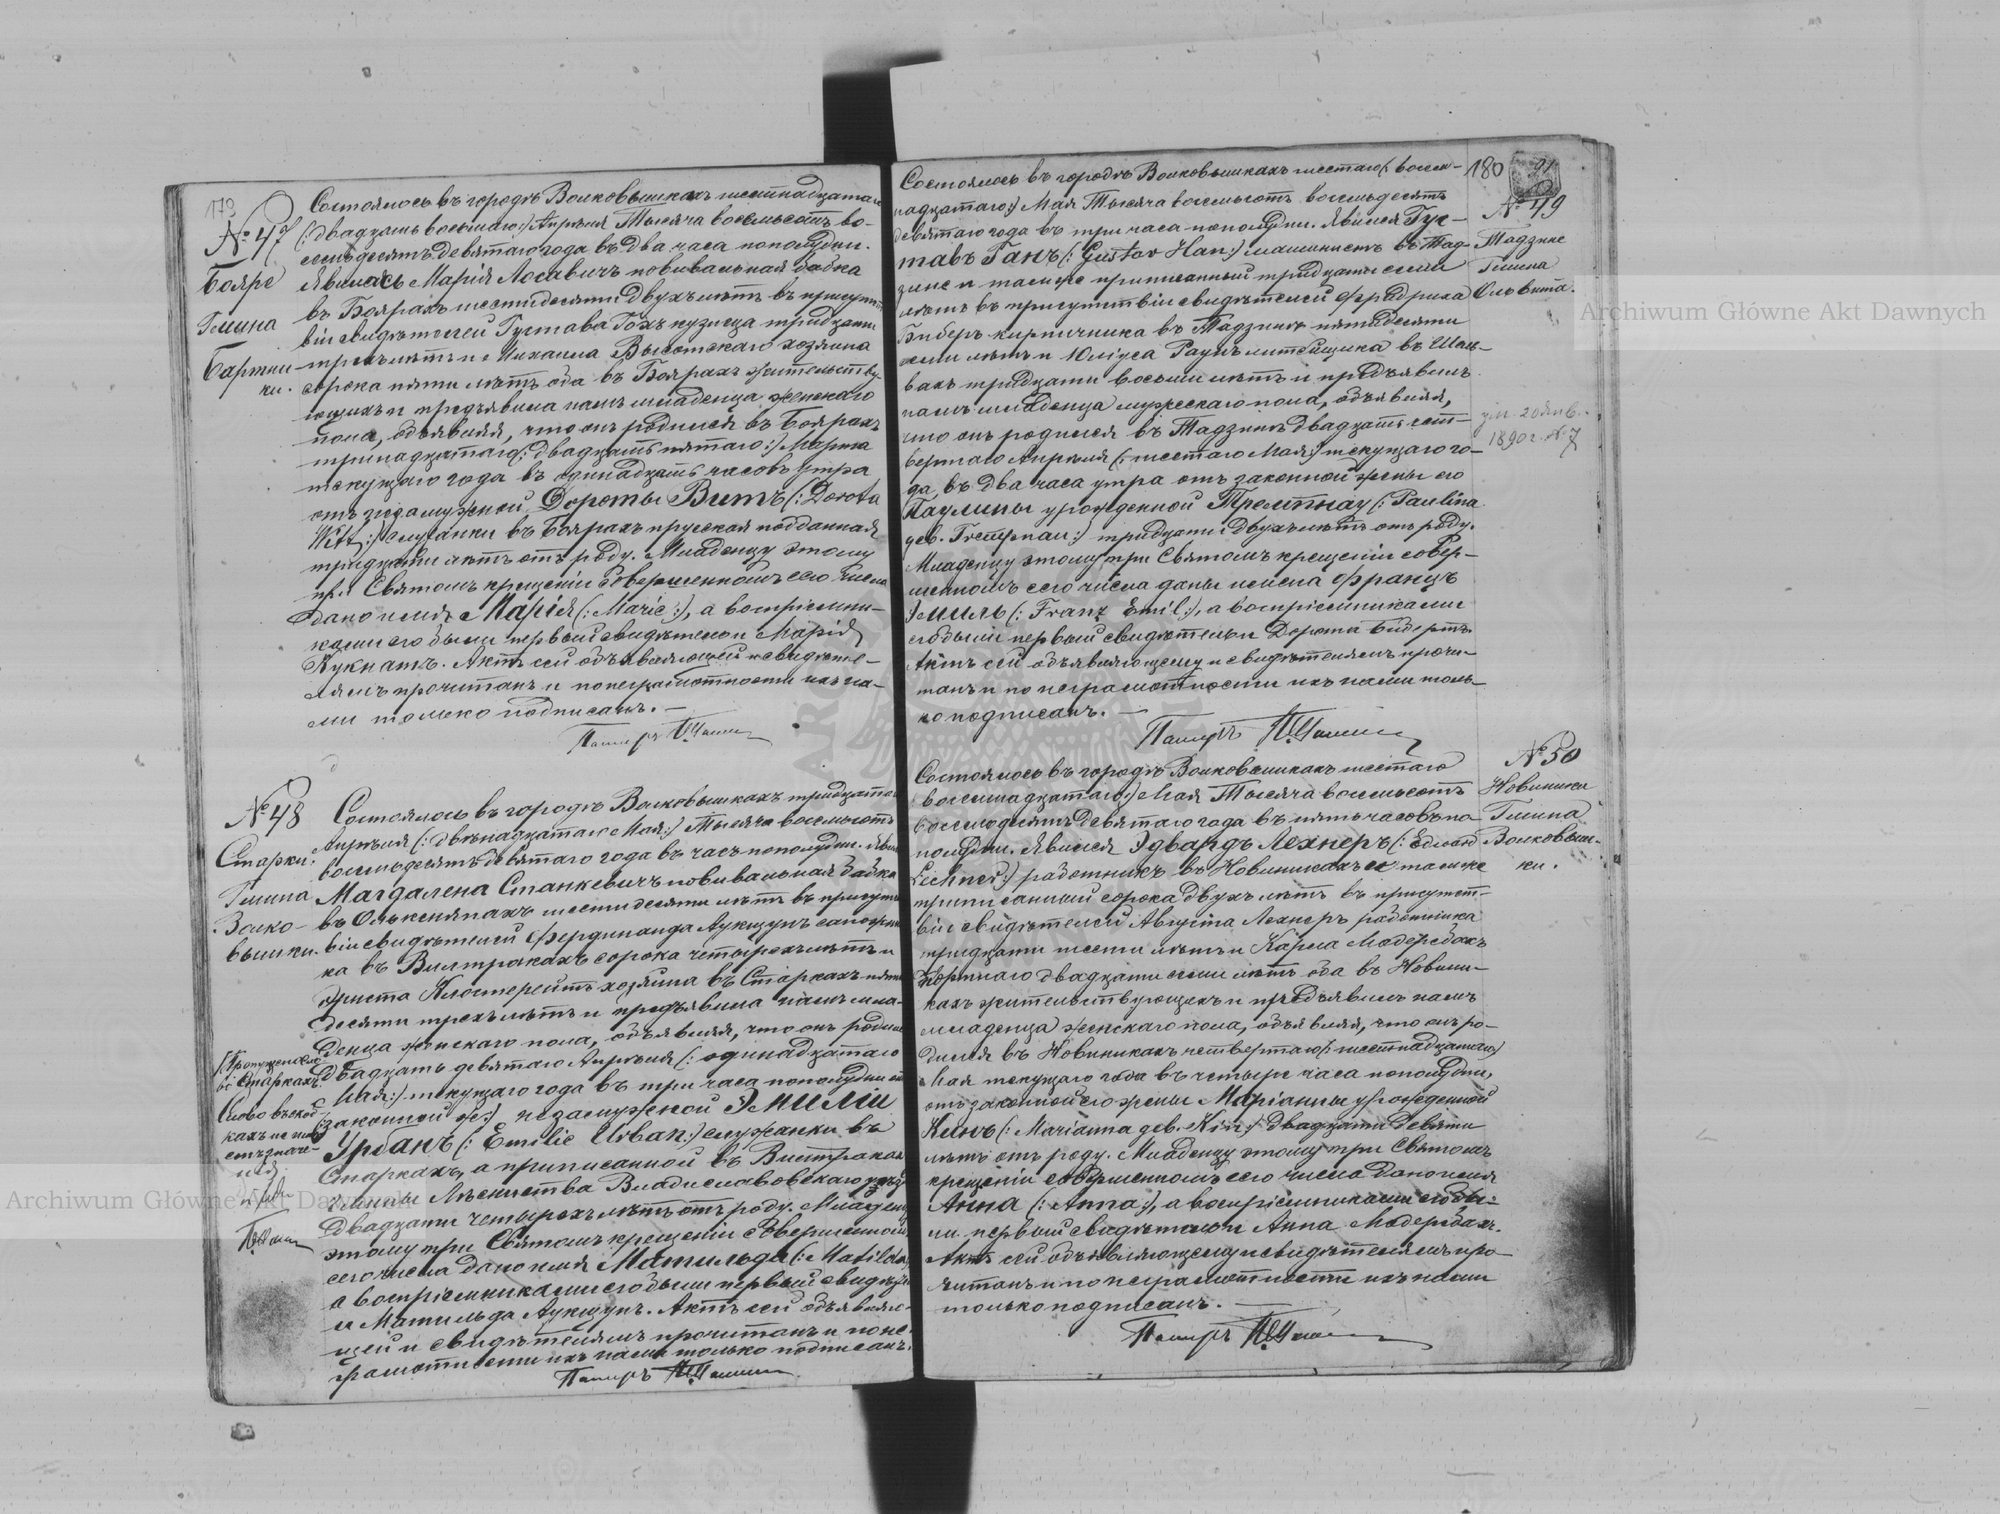 179
№ 47
Бояре
Гмина
Бартни-
ки.
Состоялось въ городѣ Волковышкахъ шестнадцатаго
(: двадцать восьмаго:) Апрѣля Тысяча восемьсотъ во-
семьдесятъ девятаго года въ два часа пополудни.
Явилась Марія Лосавичъ повивальная бабка
въ Боярахъ шестидесяти двухъ лѣтъ въ присутст-
віи свидѣтелей Густава Гохъ кузнеца тридцати
трехъ лѣтъ и Михаила Высотскаго хозяина
сорока пяти лѣтъ оба въ Боярахъ жительству-
ющихъ и предъявила намъ младенца женскаго
пола, объявляя, что онъ родился въ Боярахъ
тринадцатаго (: двадцать пятаго:) Марта
текущаго года въ одинадцать часовъ утра
отъ незамужной Дороты Витъ (: Dorota
Witt:) служанки въ Боярахъ прусская подданная
тридцати лѣтъ отъ роду. Младенцу этому
при Святомъ крещеніи совершенномъ сего числа
дано имя Марія (: Marie:), а воспріемни-
ками его были первый свидѣтель и Марія
Кукнатъ. Актъ сей объявляющей и свидѣте-
лямъ прочитанъ и по неграмотности ихъ на-
ми только подписанъ. —
Пасторъ
№ 48
Старки.
Гмина
Волко-
вышки.
Состоялось въ городѣ Волковышкахъ тридцатаго
Апрѣля (: двѣнадцатаго Мая:) Тысяча восемьсотъ
восемьдесятъ девятаго года въ часъ пополудни. Явил
Магдалена Станкевичъ повивальная бабка
въ Олькснянахъ шестидесяти лѣтъ въ присутст
віи свидѣтелей Фердинанда Аукщунъ сапожни
ка въ Вистракахъ сорока четырехъ лѣтъ и
Криста Клостерейтъ хозяина въ Старкахъ пяти
десяти трехъ лѣтъ и предъявила намъ мла-
денца женскаго пола, объявляя, что онъ родился
двадцать девятаго Апрѣля (: одинадцатаго
Мая:) текущаго года въ три часа пополудни от
(законной ж:) незамужной Эмиліи
Урбанъ (: Emilie Urban:) служанки въ
Старкахъ, а приписанной въ Вистракахъ
гмины Лѣсництва Владиславовскаго уѣзда
двадцати четырехъ лѣтъ отъ роду. Младенцу
этому при Святомъ крещеніи совершенномъ
сего числа дано имя Матильда (: Matilda
а воспріемниками его были первый свидѣтель
и Матильда Аукщунъ. Актъ сей объявляю-
щей и свидѣтелямъ прочитанъ и по не-
грамотности ихъ нами только подписанъ.
Пасторъ
(Пропущено сло
въ Старкахъ.
Слово въ скоб
кахъ не имѣ
етъ значе-
нія.
180
91
№ 49
Тадзине
Гмина
Ольвита.
20 Янв.
1890 г. № 7
Состоялось въ городѣ Волковышкахъ шестаго (: восем-
надцатаго:) Мая Тысяча восемьсотъ восемьдесятъ
девятаго года въ три часа пополудни. Явился Гус-
тавъ Ганъ (: Gustav Han:) машинистъ въ Тад-
зине и тамже приписанный тридцати семи
лѣтъ въ присутствіи свидѣтелей Фридриха
Биберъ кирпичника въ Тадзинѣ пятидесяти
семи лѣтъ и Юліуса Раунъ литейщика въ Шил-
вахъ тридцати восьми лѣтъ и предъявилъ
намъ младенца мужескаго пола, объявляя,
что онъ родился въ Тадзинѣ двадцать чет-
вертаго Апрѣля (: шестаго Мая:) текущаго го-
да, въ два часа утра отъ законной жены его
Паулины урожденной Тремпнау (: Paulina
дев. Trempnau:) тридцати двухъ лѣтъ отъ роду.
Младенцу этому при Святомъ крещеніи совер-
шенномъ сего числа даны имена Францъ
Эмиль (: Franz Emil:), а воспріемниками
его были первый свидѣтель и Дорота Бидертъ.
Актъ сей объявляющему и свидѣтелямъ прочи-
танъ и по неграмотности ихъ нами толь-
ко подписанъ. —
Пасторъ
№ 50
Новиники
Гмина
Волковыш-
ки.
Состоялось въ городѣ Волковышкахъ шестаго
(восемнадцатаго:) Мая Тысяча восемьсотъ
восемьдесятъ девятаго года въ пять часовъ по
полудни. Явился Эдвардъ Лехнеръ (: Edward
Lechner:) работникъ въ Новиникахъ и тамже
приписанный сорока двухъ лѣтъ въ присутст-
віи свидѣтелей Августа Лехнеръ работника
тридцати шести лѣтъ и Карла Модербахъ
двадцати семи лѣтъ оба въ Новини-
кахъ жительствующихъ и предъявилъ намъ
младенца женскаго пола, объявляя, что онъ ро-
дился въ Новиникахъ четвертаго (: шестнадцатаго:)
Мая текущаго года въ четыре часа пополудни,
отъ законной его жены Маріанны урожденной
Кинъ (: Marianna дев. Kin:) двадцати девяти
лѣтъ отъ роду. Младенцу этому при Святомъ
крещеніи совершенномъ сего числа дано имя
Анна (: Anna:), а воспріемниками его бы-
ли первый свидѣтель и Анна Модербахъ.
Актъ сей объявляющему и свидѣтелямъ про-
читанъ и по неграмотности ихъ нами
только подписанъ. —
Пасторъ
Archiwum Główne Akt Dawnych
Archiwum Główne Akt Dawnych